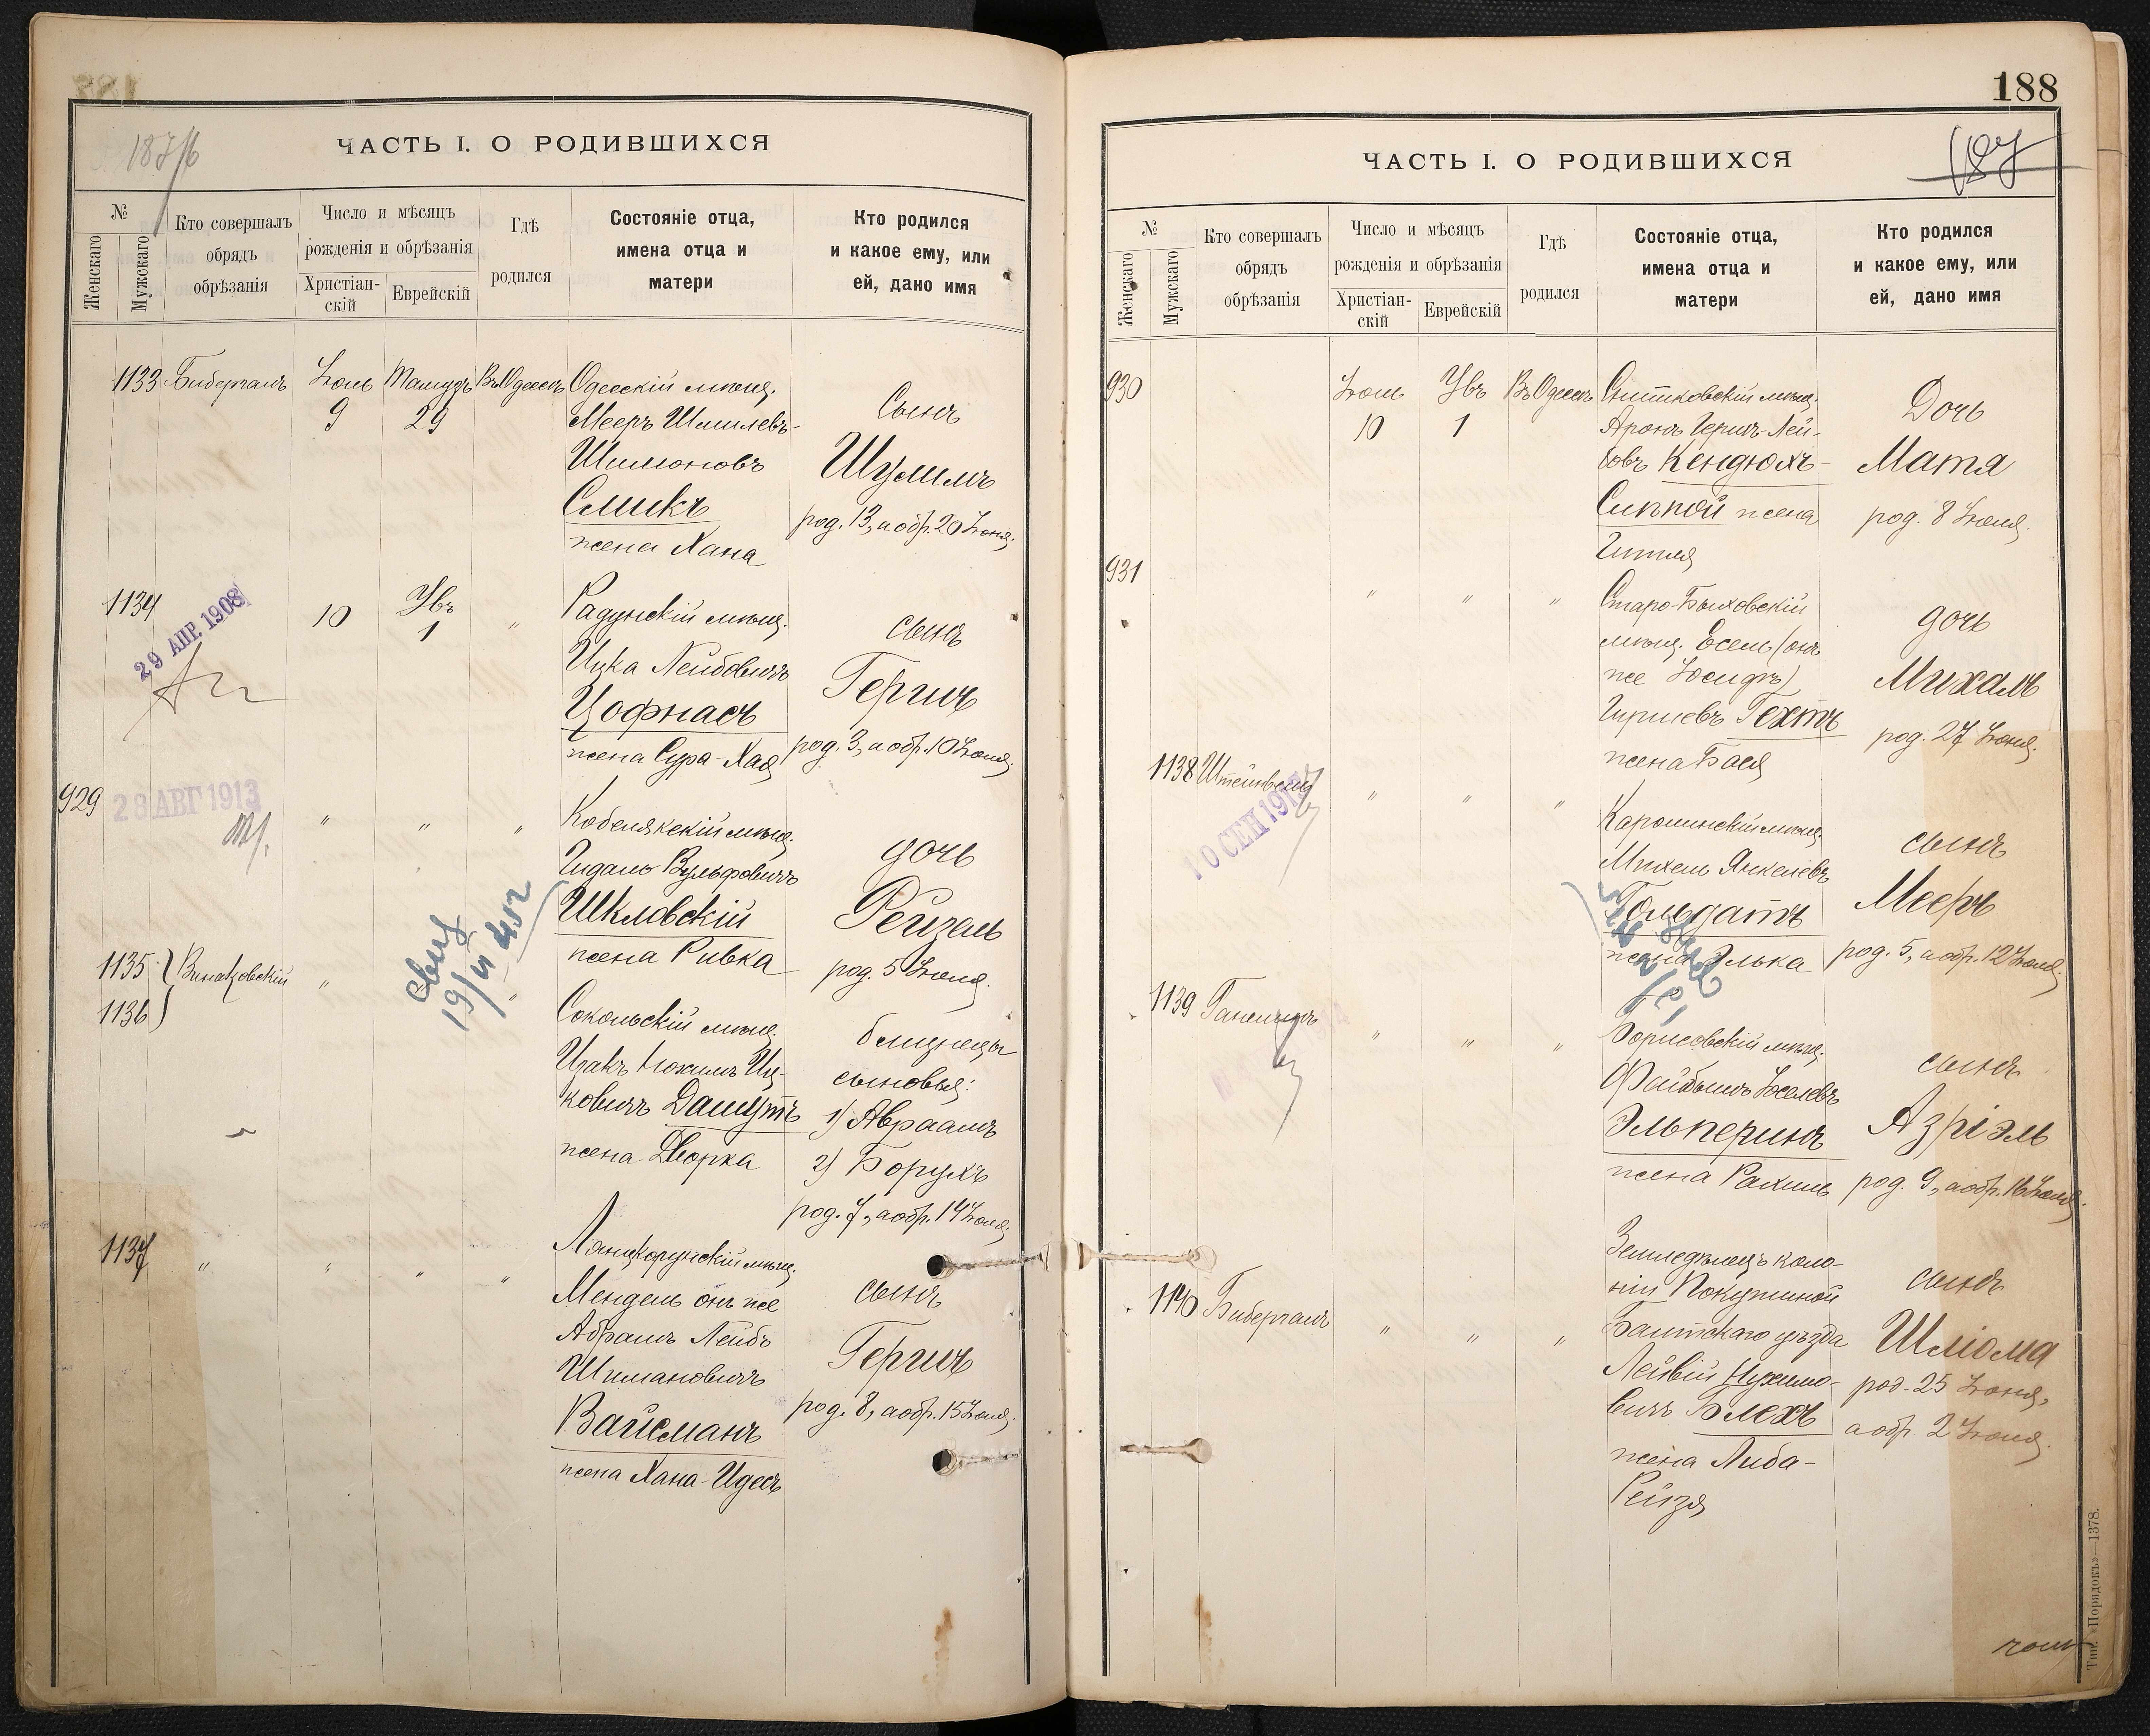 187/б
ЧАСТЬ I. О РОДИВШИХСЯ
№
Женскаго
Мужскаго
Кто совершалъ
обрядъ
обрѣзанія
Число и мѣсяцъ
рожденія и обрѣзанія
Христіан-
скій
Еврейскій
Гдѣ
родился
Состояніе отца,
имена отца и
матери
Кто родился
и какое ему, или
ей, дано имя
1133
Бибергалъ
Іюль
9
Тамузъ
29
Въ Одессѣ
Одесскій мѣщ.
Мееръ Шмилевъ-
Шимоновъ
Смикъ
жена Хана
Сынъ
Шулимъ
род. 13, а обр. 20 Іюня.
1134
29 АПР. 1908
10
Увъ
1
"
Радунскій мѣщ.
Ицка Лейбовичъ
Цофнасъ
жена Сура-Хая
сынъ
Гершъ
род. 3, а обр. 10 Іюля.
929
28 АВГ 1913
"
"
"
Кобелякскій мѣщ.
Гидаль Вульфовичъ
Шкловскій
жена Ривка
дочь
Рейзель
род. 5 Іюля.
1135
1136
"
"
Сокольскій мѣщ.
Ицакъ Нохимъ Иц-
ковичъ Дашутъ
жена Дворка
близнецы
сыновья:
1) Авраамъ
2) Борухъ
род. 7, а обр. 14 Іюля.
1137
"
"
"
"
Лянцкорунскій мѣщ.
Мендель онъ же
Абрамъ Лейбъ
Шимановичъ
Вайсманъ
жена Хана-Идесъ
сынъ
Гершъ
род. 8, а обр. 15 Іюля.
188
187
ЧАСТЬ I. О РОДИВШИХСЯ
№
Женскаго
Мужскаго
Кто совершалъ
обрядъ
обрѣзанія
Число и мѣсяцъ
рожденія и обрѣзанія
Христіан-
скій
Еврейскій
Гдѣ
родился
Состояніе отца,
имена отца и
матери
Кто родился
и какое ему, или
ей, дано имя
930
Іюль
10
Увъ
1
Въ Одессѣ
Снитковскій мѣщ.
Аронъ Гершъ-Лей-
бовъ Кендюхъ-
Сипкой жена
Гитля
Дочь
Матя
род. 8 Іюля.
931
"
"
"
Старо-Быховскій
мѣщ. Есель (онъ
же Іосифъ)
Гиршевъ Гехтъ
жена Бася
дочь
Михаль
род. 27 Іюня.
1138
10 СЕН 191
"
"
"
Каролинскій мѣщ.
Михель Янкелевъ
Гольдатъ
жена Элька
сынъ
Мееръ
род. 5, а обр. 12 Іюля.
1139
"
"
"
Борисовскій мѣщ.
Файбышъ Іоселевъ
Эльперинъ
жена Рахиль
сынъ
Азріэль
род. 9, а обр. 16 Іюля.
1140
Бибергалъ
"
"
"
Земледѣлецъ коло-
ніи Покутиной
Балтскаго уѣзда
Лейвій Нухимо-
вичъ Блехъ
жена Либа-
Рейзя
сынъ
Шліома
род. 25 Іюня,
а обр. 2 Іюля.
Тип. «Порядокъ»—1378.